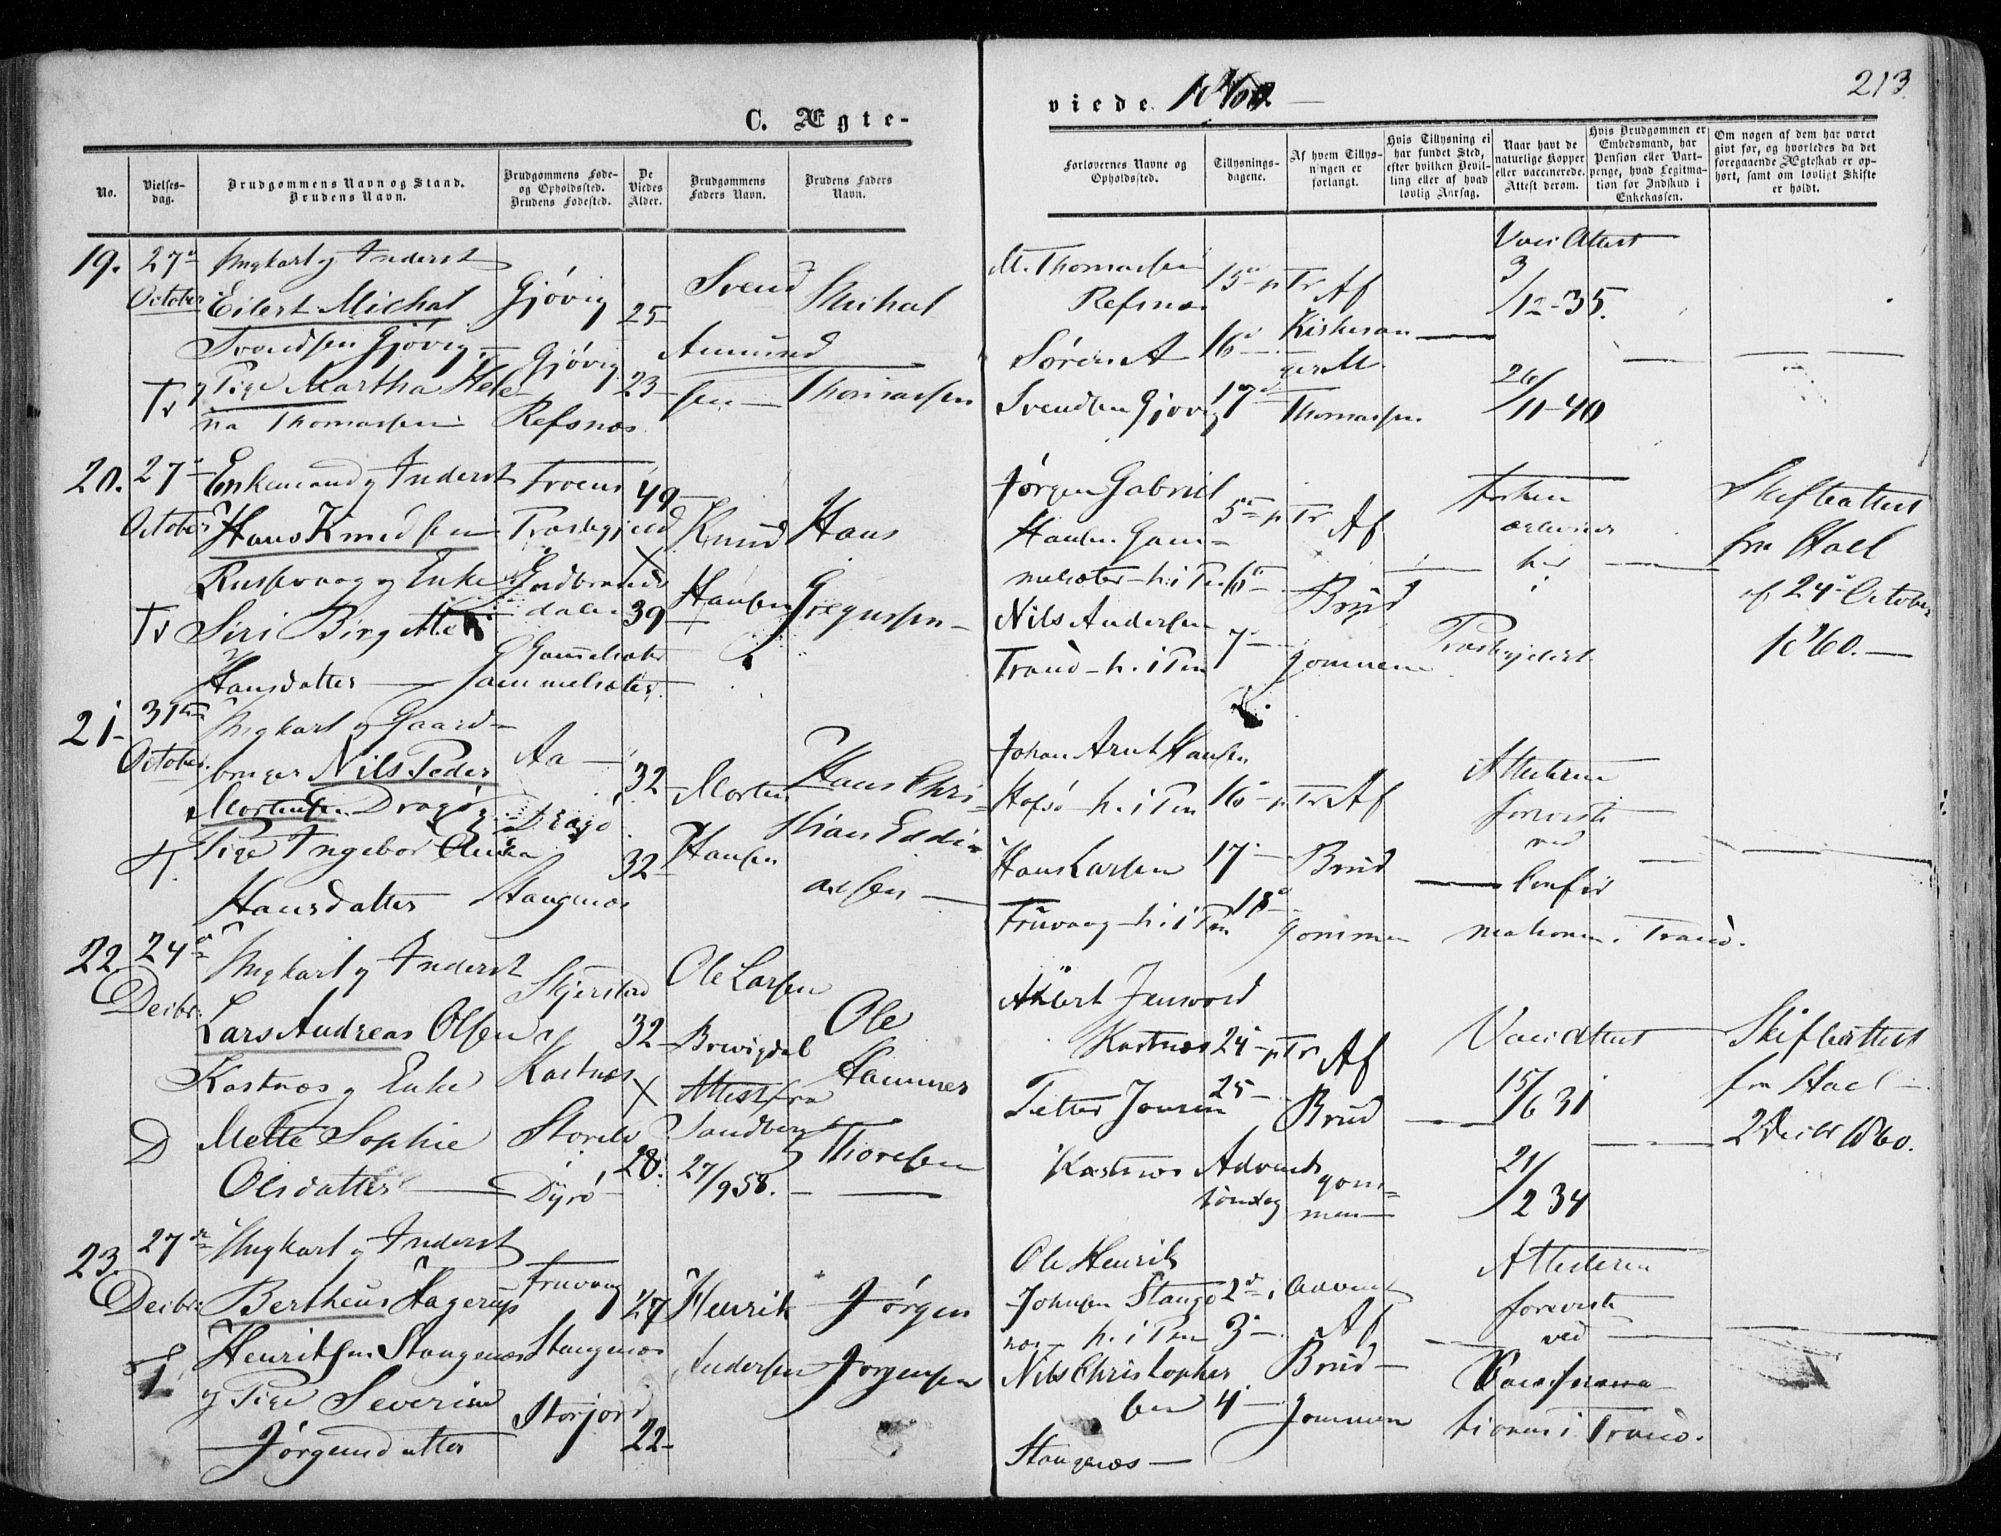 213
C. Ægte-
viede 1860
No.
Vielses-
dag.
Brudgommens Navn og Stand.
Brudens Navn.
Brudgommens Føde-
og Opholdssted.
Brudens Fødested.
De
Viedes
Alder.
Brudgommens
Faders Navn.
Brudens Faders
Navn.
Forlovernes Navne og
Opholdssted.
Tillysnings-
dagene.
Af hvem Tillys-
ningen er
forlangt.
Hvis Tillysning ei
har fundet Sted,
efter hvilken Bevil-
ling eller af hvad
lovlig Aarsag.
Naar havt de
naturlige Kopper
eller vaccinerede.
Attest derom.
Hvis Brudgommen er
Embedsmand, har
Pension eller Vart-
penge, hvad Legitima-
tion for Indskud i
Enkekassen.
Om nogen af dem har været
gift før, og hvorledes da det
foregaaende Ægteskab er op-
hørt, samt om lovligt Skifte
er holdt.
19. 27de Ungkarl og Inderst
October Eilert Michal Gjøvig 25
Svendsen Gjøvig
Pige Martha Hele- Gjøvig 23
na Thomassen Refsnæs
Svend
Amund
sen
Michal
Thomassen
M. Thomassen
Refsnæs
Søren A
Svendsen Gjøvig
15de p Tr
16de
17de
Af
Kirkesan
ger M.
Thomassen
Vacc. Attest
3/12-35.
26/11-40
20. 27de Enkemand og Inderst
October Hans Knudsen 49
og Enke
Tr Siri Birgitte 39
Hansdatter
Præstegjeld
Gudbrands
dalen
Gammelsæter
Knud
Hansen
Hans
Gregussen
Jørgen Gabriel
Hansen Gam-
melsæter h. i Pn
Nils Andersen
Tranø h. i Pn
5te p Tr
6te
7de
Af
Brud
gommen
her
i
Præstegjeldet
Skifteattest
fra
af 24de October
1860.
21. 31te Ungkarl og Gaard-
October bruger Nils Peder Aa 32
Mortensen Dragø
T. Pige Ingebor Anna 32
Hansdatter Stangnæs
Morten
Hansen
Hans Chri-
stian Eddi-
assen
Johan Arnt Hansen
Hofsø h. i Pn
Hans Larsen
Fruvaag h. i Pn
16de p Tr
17de
18de
Af
Brud
gommen
Attesterne
foreviste
ved
Confir
mationen i Tranø.
22. 24de Ungkarl og Inderst
Decbr. Lars Andreas Olsen 32
Kastnæs og Enke
D Mette Sophie 28
Olsdatter
Skjerstad
Kastnæs
i
Dyrø
Ole Larsen
Brevigdal
Attest fra
Sandberg
27/9 58.
Ole
Hammer
Thoresen
Kastnæs
Petter Jonsen
Kastnæs
24de p Tr
25
Advents
søndag
Af
Brud
gom-
men
Vaccidattest
15/6 31
21/2 34
Skifteattest
fra
2 Decbr 1860.
23. 27de Ungkarl og Inderst
Decbr. Bertheus Hagerup 27
Henriksen Stangnæs
og Pige Severine
Jørgensdatter 22
Fruvaag
Stangnæs
Storjord
Henrik
Andersen
Jørgen
Jørgensen
Ole Henrik
Johnsen Stang
næs h. i Pn
Nils Christopher
sen
Stangnæs
2de i Advent
3de
4de
Af
Brud-
gommen
Attesterne
foreviste
ved
tionen i Tranø.